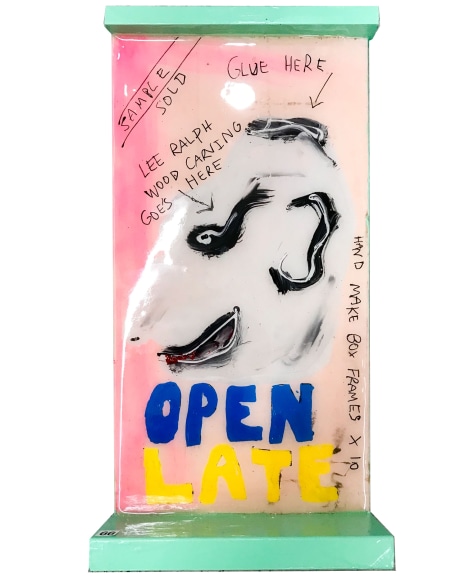 SAMPLE
SOLD
GLUE HERE
LEE RALPH
WOOD CARVING
GOE'S HERE
HAND MAKE BOX FRAMES X 10
OPEN
LATE